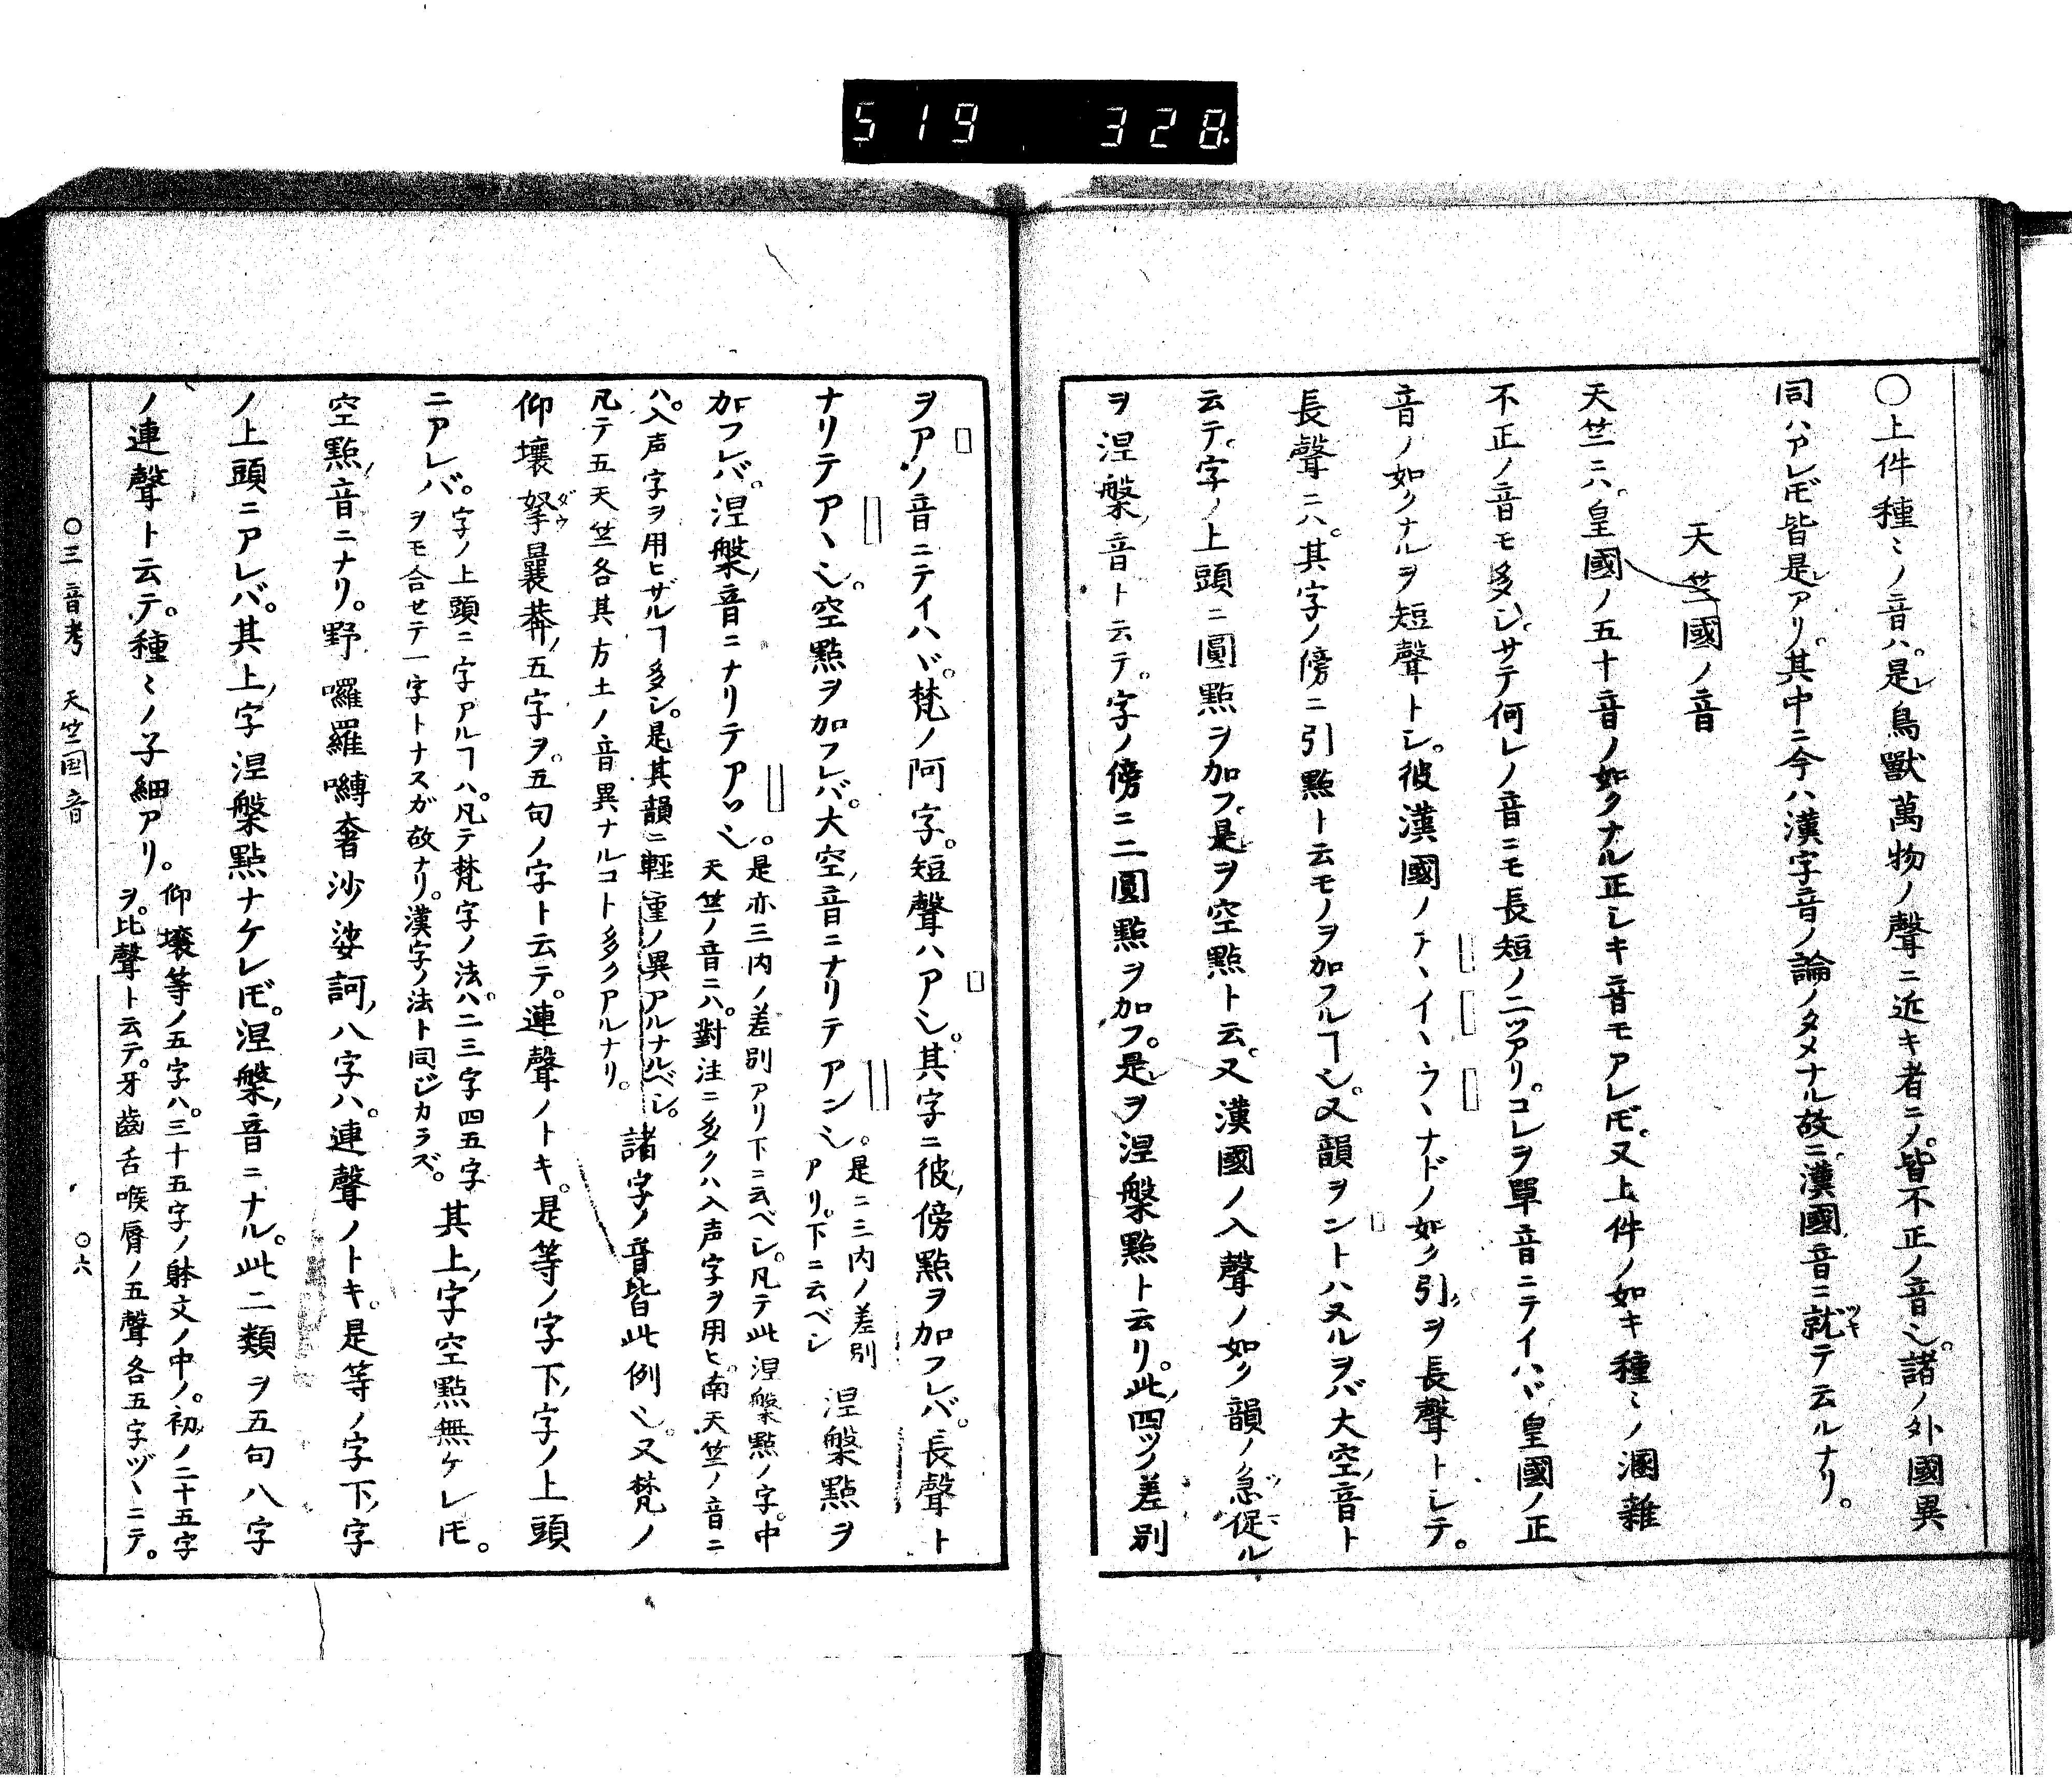 519 328
〇上件種〻ノ音ハ。是レ鳥獸萬物ノ聲ニ近キ者ニメ。皆不正ノ音也。諸ノ外國異
同ハアレ𪜈皆是レアリ。其中ニ今ハ漢字音ノ論ノタメナル故ニ。漢國音ニ就ツキテ云ルナリ。
天竺國ノ音
天竺ニハ。皇國ノ五十音ノ如クナル正シキ音モアレ𪜈。又上件ノ如キ種〻ノ溷雜
不正ノ音モ多シ。サテ何レノ音ニモ長短ノ二ツアリ。コレヲ單音ニテイハヾ皇國ノ正
音ノ如クナルヲ短聲トシ。彼漢國ノアヽイヽウヽナドノ如ク引クヲ長聲トシテ。
長聲ニハ。其字ノ傍ニ引點ト云モノヲ加フルヿ也。又韻ヲントハヌルヲバ大空ノ音ト
云テ。字ノ上頭ニ圓點ヲ加フ。是レヲ空點ト云。又漢國ノ入聲ノ如ク韻ノ急促ル
ヲ涅槃ノ音ト云テ。字ノ傍ニ二圓點ヲ加フ。是レヲ涅槃點ト云リ。此ノ四ツノ差別
ヲアノ音ニテイハヾ。梵ノ阿字。短聲ハア也。其字ニ彼ノ傍點ヲ加フレバ。長聲ト
ナリテアヽ也。空點ヲ加フレバ。大空ノ音ニナリテアン也。是ニ三内ノ差別
アリ。下ニ云ベシ
涅槃點ヲ
加フレバ。涅槃ノ音ニナリテアツ也。是亦三内ノ差別アリ下ニ云ベシ。凡テ此涅槃點ノ字。中
天竺ノ音ニハ。對注ニ多クハ入声字ヲ用ヒ。南天竺ノ音ニ
ハ。入声字ヲ用ヒザルヿ多シ。是其韻ニ輕重ノ異アルナルベシ。
凡テ五天竺各其方土ノ音異ナルコト多クアルナリ。
諸字ノ音皆此例也。又梵ノ
仰壤拏ダウ曩莾ノ五字ヲ。五句ノ字ト云テ。連聲ノトキ。是等ノ字下ノ字ノ上頭
ニアレバ。字ノ上頭ニ字アルヿハ。凡テ梵字ノ法ハ。二三字四五字
ヲモ合セテ一字トナスガ故ナリ。漢字ノ法ト同ジカラズ。
其上ノ字空點無ケレ𪜈。
空點ノ音ニナリ。野囉羅嚩奢沙娑訶ノ八字ハ。連聲ノトキ。是等ノ字下ノ字
ノ上頭ニアレバ。其上ノ字涅槃點ナケレ𪜈。涅槃ノ音ニナル。此二類ヲ五句八字
ノ連聲ト云テ。種〻ノ子細アリ。仰壤等ノ五字ハ。三十五字ノ躰文ノ中ノ。初ノ二十五字
ヲ。比聲ト云テ。牙齒舌喉脣ノ五聲各五字ヅヽニテ。
〇三音考 天竺国音 〇六